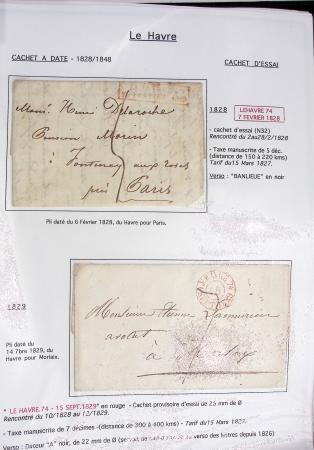 Le Havre
CACHET A DATE - 1828/1848
CACHET D'ESSAI
Monsr. Henri Delaroche
Pension Morin
à Fontenay aux roses
près Paris
1828
LEHAVRE 74
7 FEVRIER 1828
- cachet d'essai (N32)
Rencontré du 2au28/2/1828
- Taxe manuscrite de 5 déc.
(distance de 150 à 220 kms)
Tarif du15 Mars 1827.
Verso : "BANLIEUE" en noir
Pli daté du 6 Février 1828, du Havre pour Paris.
1829
Pli daté du
14 7bre 1829, du
Havre pour Morlaix.
Monsieur Etienne
avocat
à
" LE HAVRE.74 - 15 SEPT.1829" en rouge - Cachet provisoire d'essai de 25 mm de Ø
Rencontré du 10/1828 au 12/1829.
- Taxe manuscrite de 7 décimes - (distance de 300 à 400 kms) - Tarif du15 Mars 1827.
Verso : Dateur "A" noir, de 22 mm de Ø verso des lettres depuis 1826)